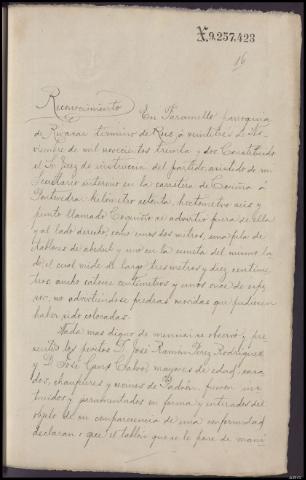 X.9.257.423
16
Reconocimiento En Faramello parroquia
de término de a veintitres de No-
viembre de mil novecientos treinta y dos Constituido
el Sr. Juez de instrucción del partido, asistido de mi
Secretario interino en la carretera de Coruña á
Pontevedra kilómetro setenta, hectometro seis y
punto llamado se advirtió fuera de ella
y al lado derecho, como unos dos metros, una pila de
tablones de abedul y uno en la cuneta del mismo la-
do, el cual mide de largo tres metros y diez centíme-
tros, ancho catorce centímetros y unos once de espe-
sor, no advirtiéndose piedras movidas que pudieran
haber sido colocadas.
Nada mas digno de mencion se observó, y pre-
sentes los peritos D. José Ramón Pérez Rodríguez
y D. José Calvo, mayores de edad, casa-
dos, chauferes y vecinos de Padrón, fueron ins-
truidos y juramentados en forma y enterados del
objeto de su comparecencia de una conformidad
declaran: que el tablón que se le pone de mani-